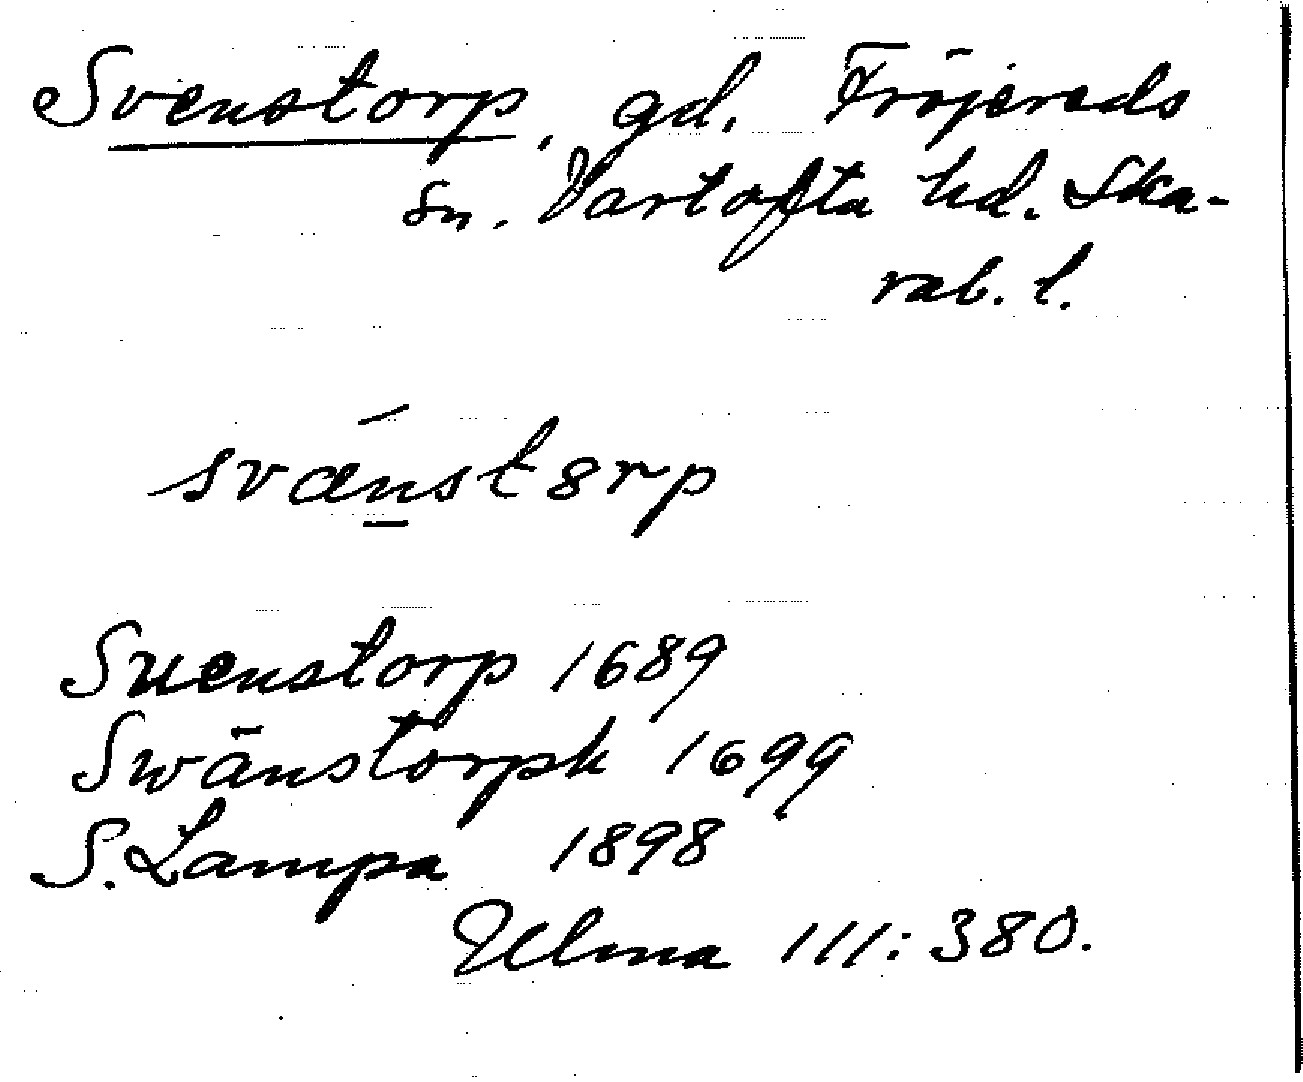 Svenstorp, gd. Fröjereds
sn. Vartofta hd. Ska-
rab. l.
svænst8rp
Suenstorp 1689
Swänstorph 1699
S. Lampa 1898
Ulma 111: 380.